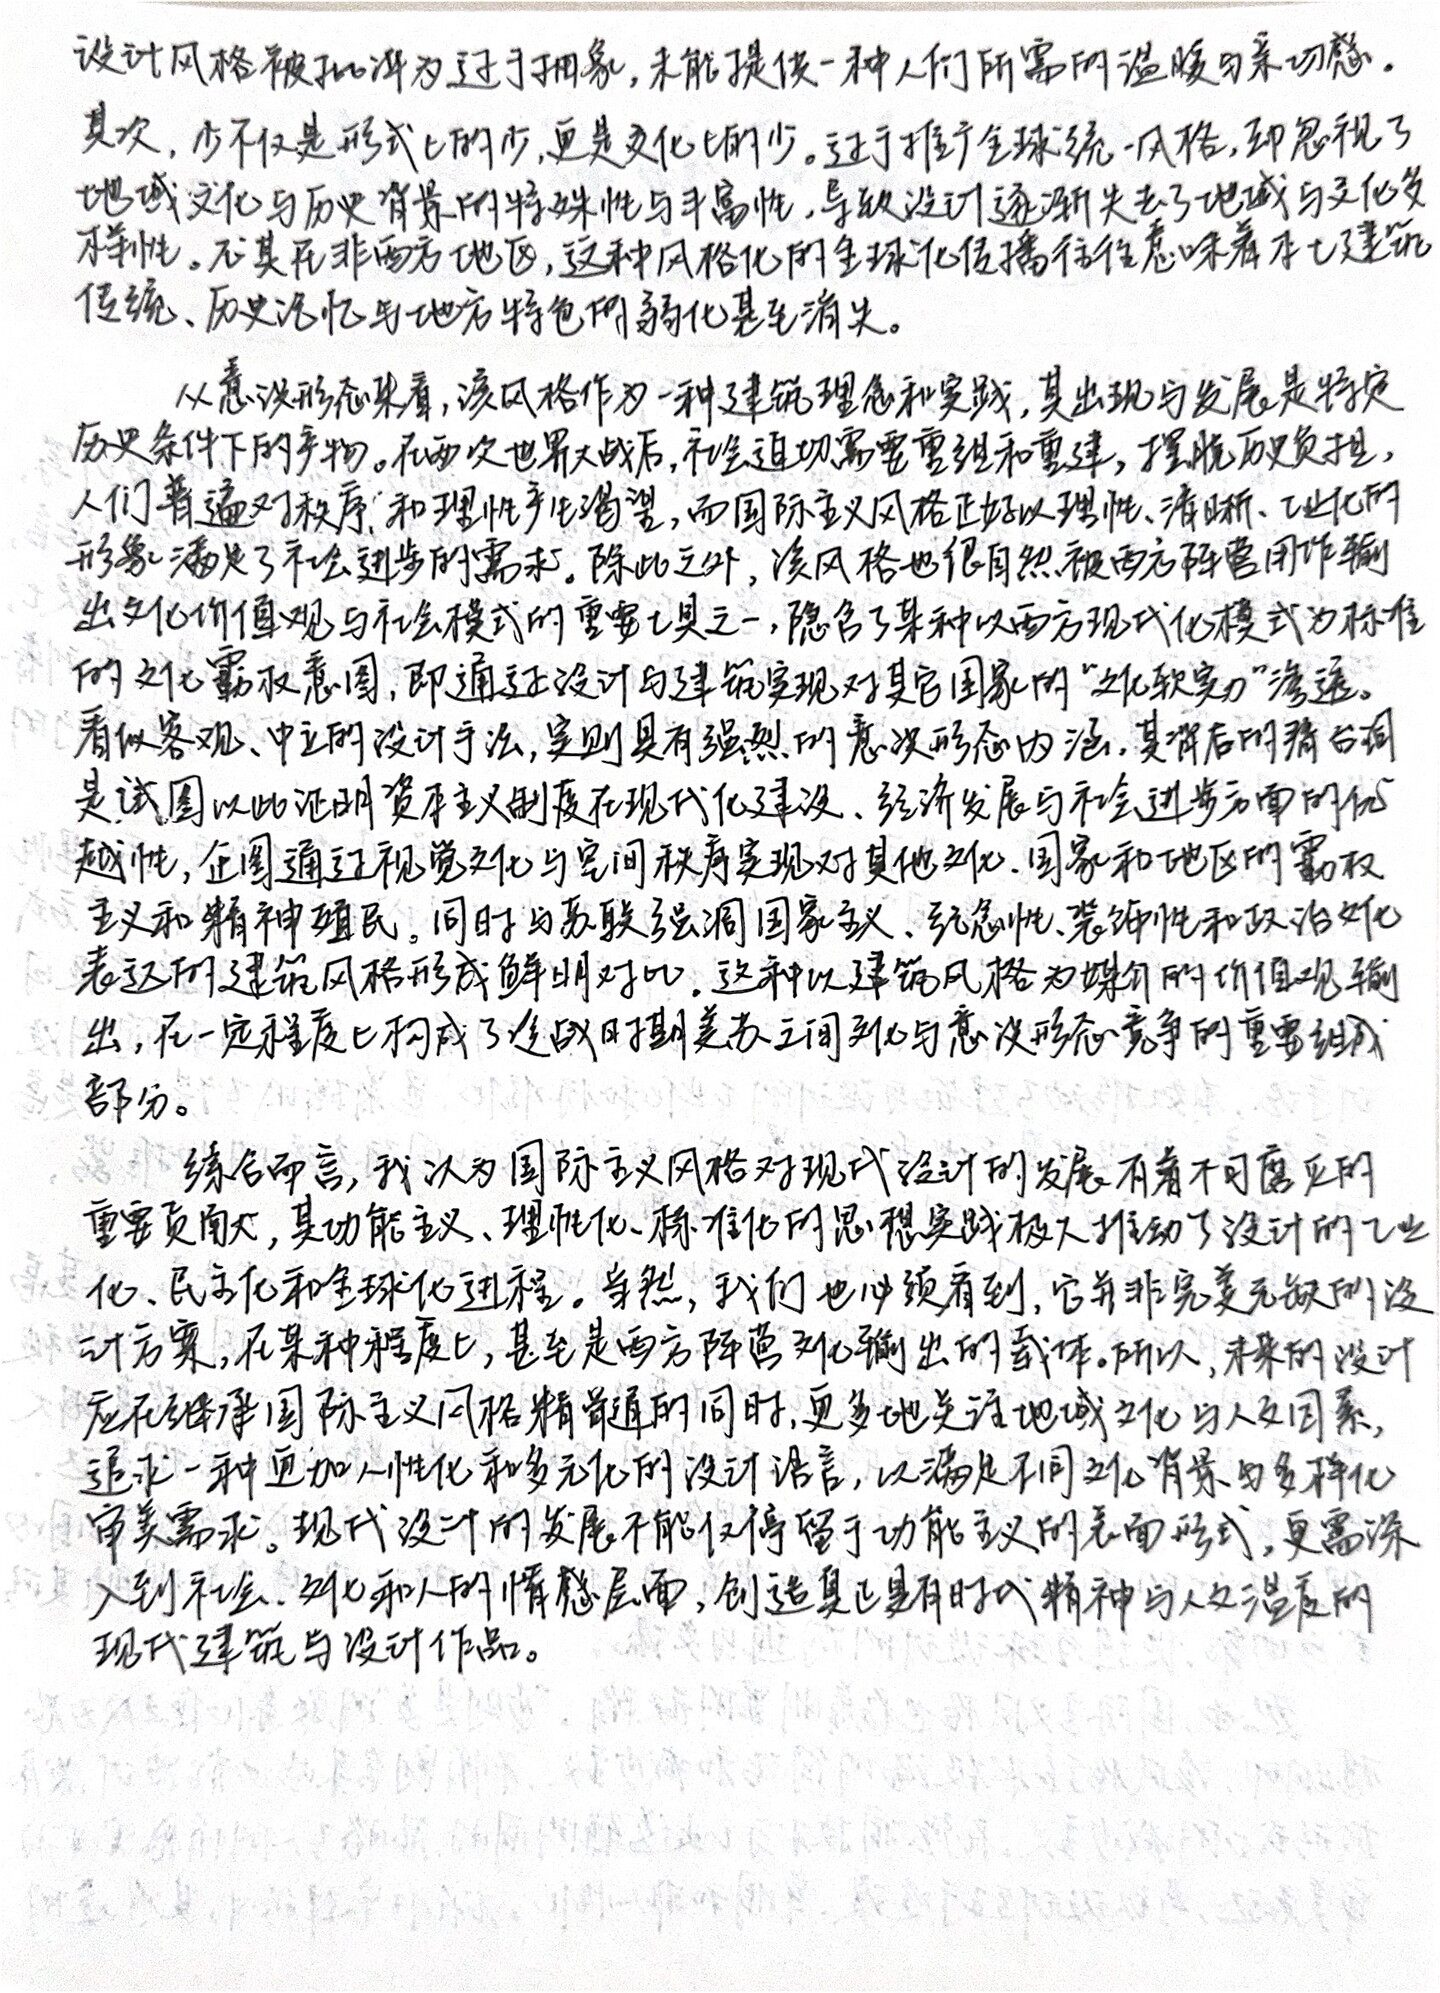 设计风格被批评为过于抽象，未能提供一种人们所需的温暖与亲切感。
其次，少不仅是形式上的少，更是文化上的少。过于推广全球统一风格，却忽视了
地域文化与历史背景的特殊性与丰富性，导致设计逐渐失去了地域与文化多
样性。尤其在非西方地区，这种风格化的全球化传播往往意味着本土建筑
传统、历史记忆与地方特色的弱化甚至消失。
从意识形态来看，该风格作为一种建筑理念和实践，其出现与发展是特定
历史条件下的产物。在两次世界大战后，社会迫切需要重组和重建，摆脱历史负担，
人们普遍对秩序和理性产生渴望，而国际主义风格正好以理性、清晰、工业化的
形象满足了社会进步的需求。除此之外，该风格也很自然被西方阵营用作输
出文化价值观与社会模式的重要工具之一，隐含了某种以西方现代化模式为标准
的文化霸权意图，即通过设计与建筑实现对其它国家的“文化软实力”渗透。
看似客观、中立的设计手法，实则具有强烈的意识形态内涵，其背后的潜台词
是试图以此证明资本主义制度在现代化建设、经济发展与社会进步方面的优
越性，企图通过视觉文化与空间秩序实现对其他文化、国家和地区的霸权
主义和精神殖民。同时与苏联强调国家主义、纪念性、装饰性和政治文化
表达的建筑风格形成鲜明对比。这种以建筑风格为媒介的价值观输
出，在一定程度上构成了冷战时期美苏之间文化与意识形态竞争的重要组成
部分。
综合而言，我认为国际主义风格对现代设计的发展有着不可磨灭的
重要贡献，其功能主义、理性化、标准化的思想实践极大推动了设计的工业
化、民主化和全球化进程。当然，我们也必须看到，它并非完美无缺的设
计方案，在某种程度上，甚至是西方阵营文化输出的载体。所以，未来的设计
应在继承国际主义风格精髓的同时，更多地关注地域文化与人文因素，
追求一种更加人性化和多元化的设计语言，以满足不同文化背景与多样化
审美需求。现代设计的发展不能仅停留于功能主义的表面形式，更需深
入到社会、文化和人的情感层面，创造真正具有时代精神与人文温度的
现代建筑与设计作品。